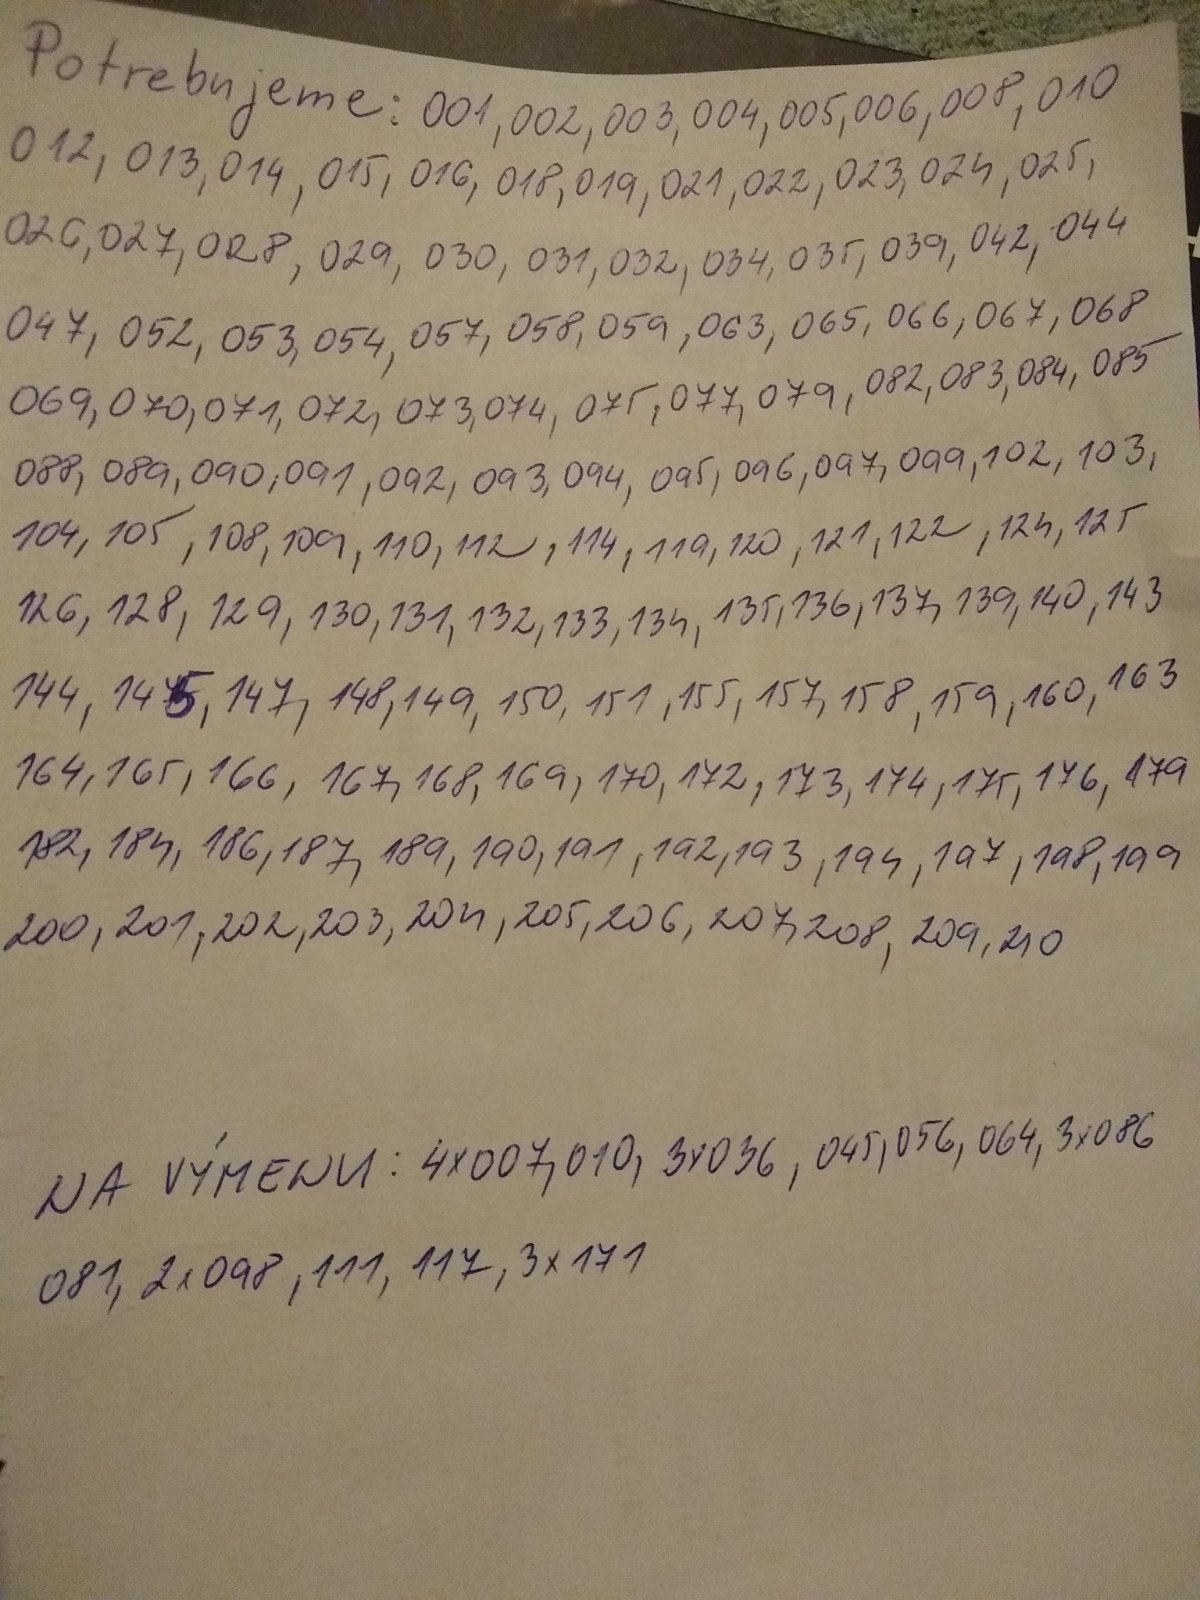 Potrebujeme: 001, 002, 003, 004, 005, 006, 008, 010
012, 013, 014, 015, 016, 018, 019, 021, 022, 023, 024, 025,
026, 027, 028, 029, 030, 031, 032, 034, 035, 039, 042, 044
047, 052, 053, 054, 057, 058, 059, 063, 065, 066, 067, 068
069, 070, 071, 072, 073, 074, 075, 077, 079, 082, 083, 084, 085
088, 089, 090, 091, 092, 093, 094, 095, 096, 097, 099, 102, 103,
104, 105, 108, 109, 110, 112, 114, 119, 120, 121, 122, 124, 125
126, 128, 129, 130, 131, 132, 133, 134, 135, 136, 137, 139, 140, 143
144, 145, 147, 148, 149, 150, 151, 155, 157, 158, 159, 160, 163
164, 165, 166, 167, 168, 169, 170, 172, 173, 174, 175, 176, 179
182, 184, 186, 187, 189, 190, 191, 192, 193, 194, 197, 198, 199
200, 201, 202, 203, 204, 205, 206, 207, 208, 209, 210
NA VÝMENU: 4x007, 010, 3x036, 045, 056, 064, 3x086
081, 2x098, 111, 117, 3x171